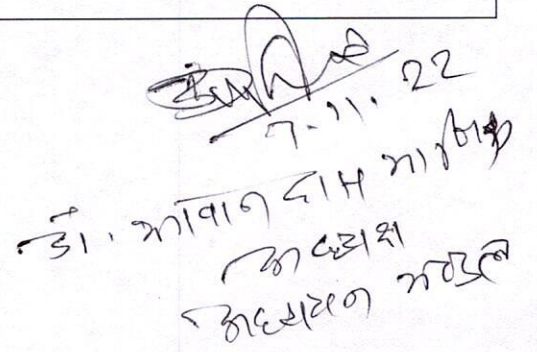 7.11.22
डॉ. भगवान दास
अध्यक्ष
अध्ययन मण्डल